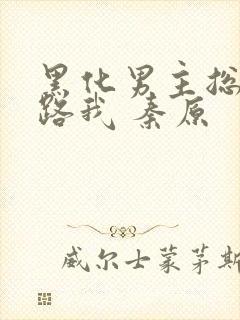 黑化男主总
路我 秦原
威尔士蒙茅斯